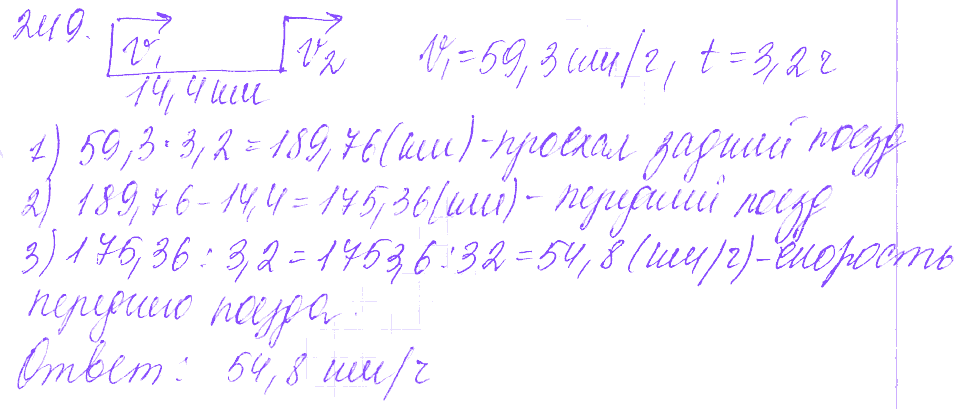 249. v₁ v₂ v₁ = 59,3 км/ч, t = 3,2 ч
14,4 км
1) 59,3 · 3,2 = 189,76 (км) - проехал задний поезд
2) 189,76 - 14,4 = 175,36 (км) - передний поезд
3) 175,36 : 3,2 = 1753,6 : 32 = 54,8 (км/ч) - скорость
переднего поезда.
Ответ: 54,8 км/ч